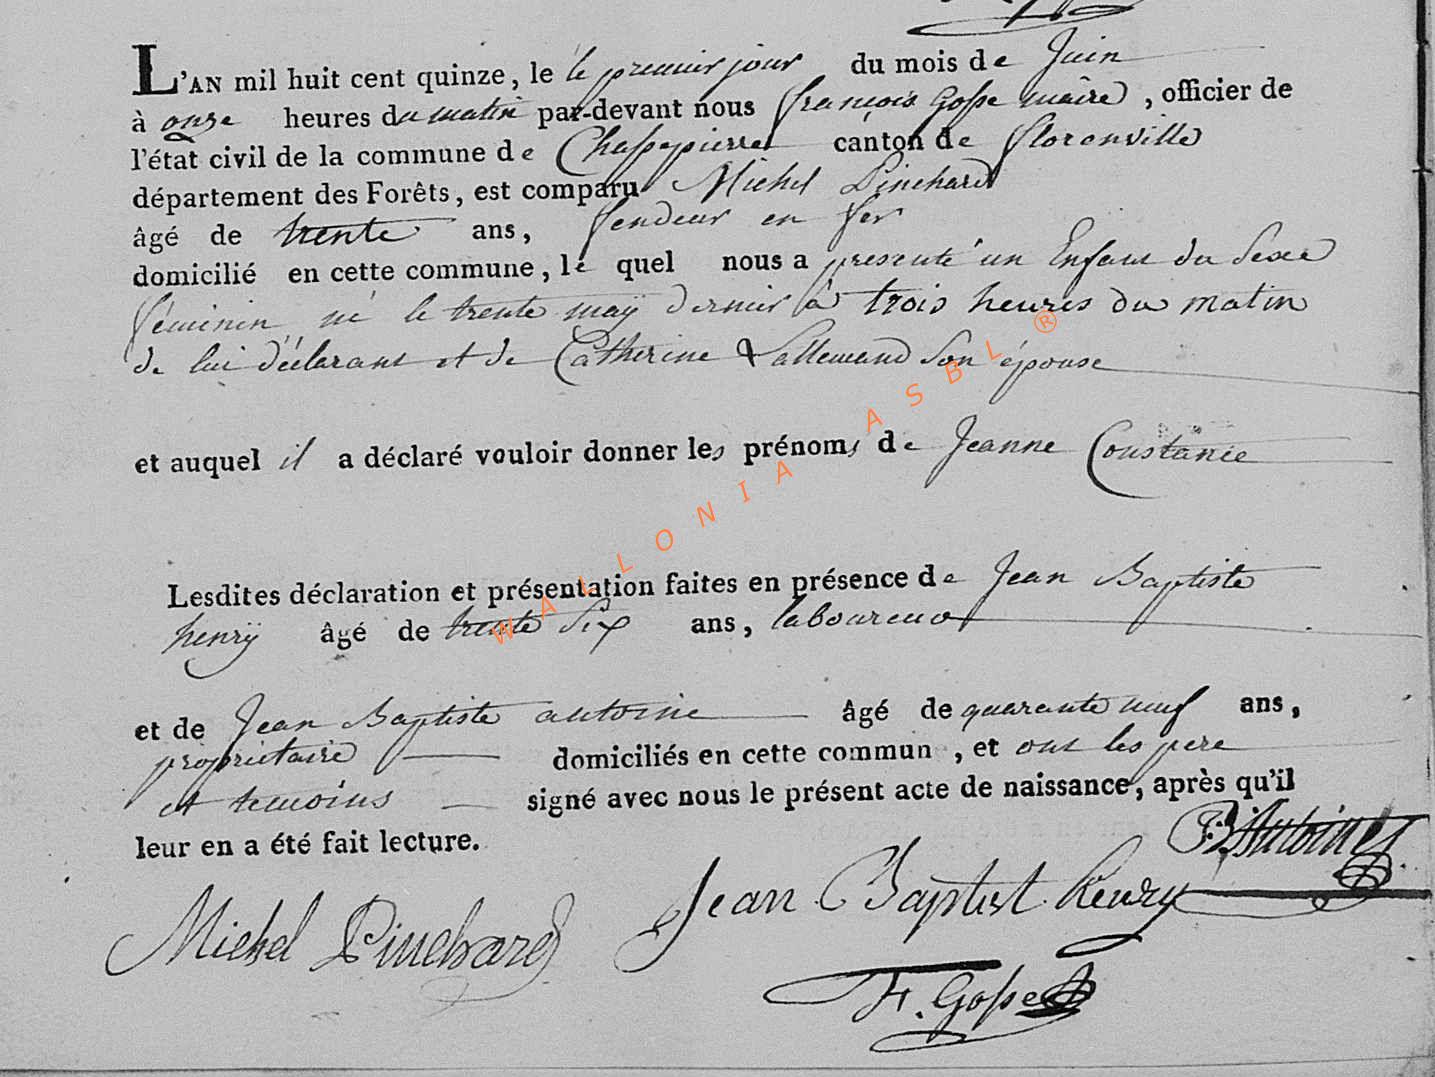 L'AN mil huit cent quinze, le le premier jour du mois de Juin
à onze heures du matin par-devant nous françois Gosse maire, officier de
l'état civil de la commune de Chassepierre canton de florenville
département des Forêts, est comparu Michel Pinchard
âgé de trente ans, fendeur en fer
domicilié en cette commune, le quel nous a presenté un Enfant du Sexe
féminin né le trente maÿ dernier à trois heures du matin
de lui déclarant et de Catherine Lallemand son épouse
et auquel il a déclaré vouloir donner les prénoms de Jeanne Constance
Lesdites déclaration et présentation faites en présence de Jean Baptiste
henrÿ âgé de trente six ans, laboureur
et de Jean Baptiste antoine âgé de quarante neuf ans,
propriétaire domiciliés en cette commun , et ont les pere
et temoins signé avec nous le présent acte de naissance, après qu'il
leur en a été fait lecture.
JB Antoine
Michel Pinchard Jean Baptist henry
F. Gosse
WALLONIA ASBL ®